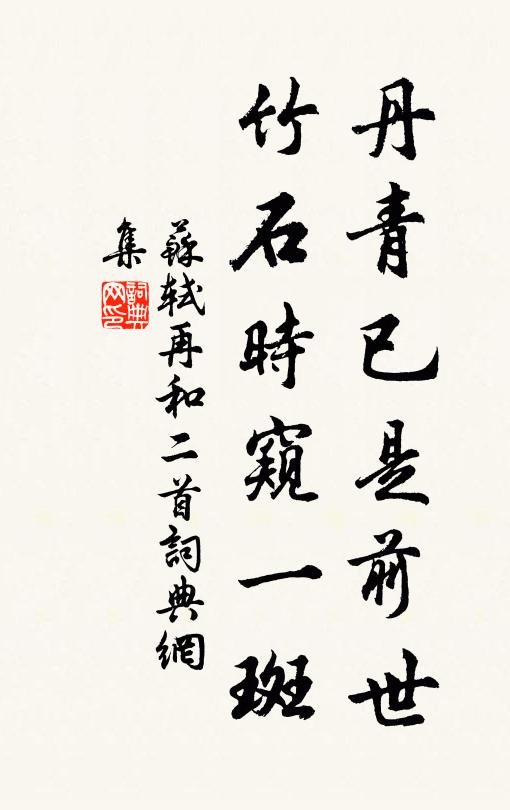 丹青已是前世
竹石時窺一斑
蘇軾再和二首詞典網
集
詞典
网印